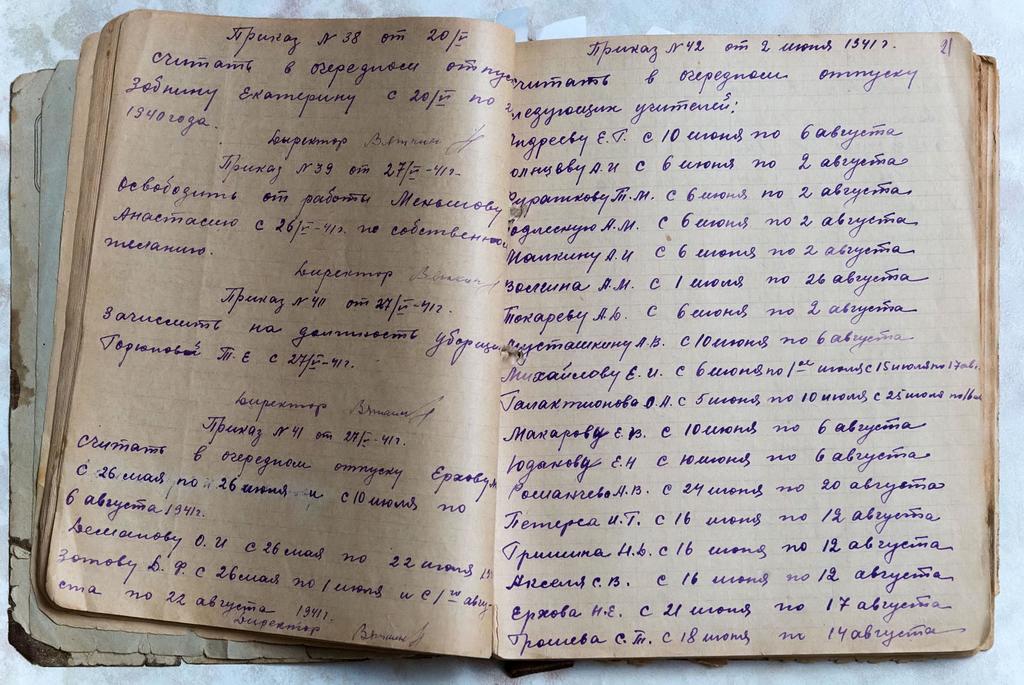 Приказ N 38 от 20/V
Считать в очередном отпус
Зобнину Екатерину с 20/V по
1940 года.
Директор
Приказ N 39 от 27/V-41г.
Освободить от работы Меньшову
Анастасию с 26/V-41г. по собственной
желанию.
Директор
Приказ N 40 от 27/V-41г.
Зачислить на должность уборщи
Т. Е с 27/V-41г.
Директор
Приказ N 41 от 27/V-41г.
Считать в очередном отпуску Ерхову
с 26 мая по 26 июня и с 10 июля по
6 августа 1941г.
Деманову О. И с 26 мая по 22 июля
Зотову Д. Ф. с 26 мая по 1 июля и с 1го авгу-
ста по 22 августа 1941г.
Директор
Приказ N 42 от 2 июня 1941г. 21
Считать в очередном отпуску
следующих учителей:
Андрееву Е. Г. с 10 июня по 6 августа
А. И с 6 июня по 2 августа
Т. М. с 6 июня по 2 августа
А. М. с 6 июня по 2 августа
А. И с 6 июня по 2 августа
Зосина А. М. с 1 июля по 26 августа
Токареву А. Д. с 6 июня по 2 августа
А. В. с 10 июня по 6 августа
Михайлову Е. И. с 6 июня по 1ое июля с 15 июля по 17 авг.
Галактионова О. А. с 5 июня по 10 июля с 25 июля по 16 ав
Макарову Е. В. с 10 июня по 6 августа
Юдакову Е. Н с июня по 6 августа
Романчево А. В. с 24 июня по 20 августа
Петерса И. Г. с 16 июня по 12 августа
Гришина Н. Д. с 16 июня по 12 августа
Акселя С. В. с 16 июня по 12 августа
Ерхова Н. Е. с 21 июня по 17 августа
Грошева С. Т. с 18 июня по 14 августа